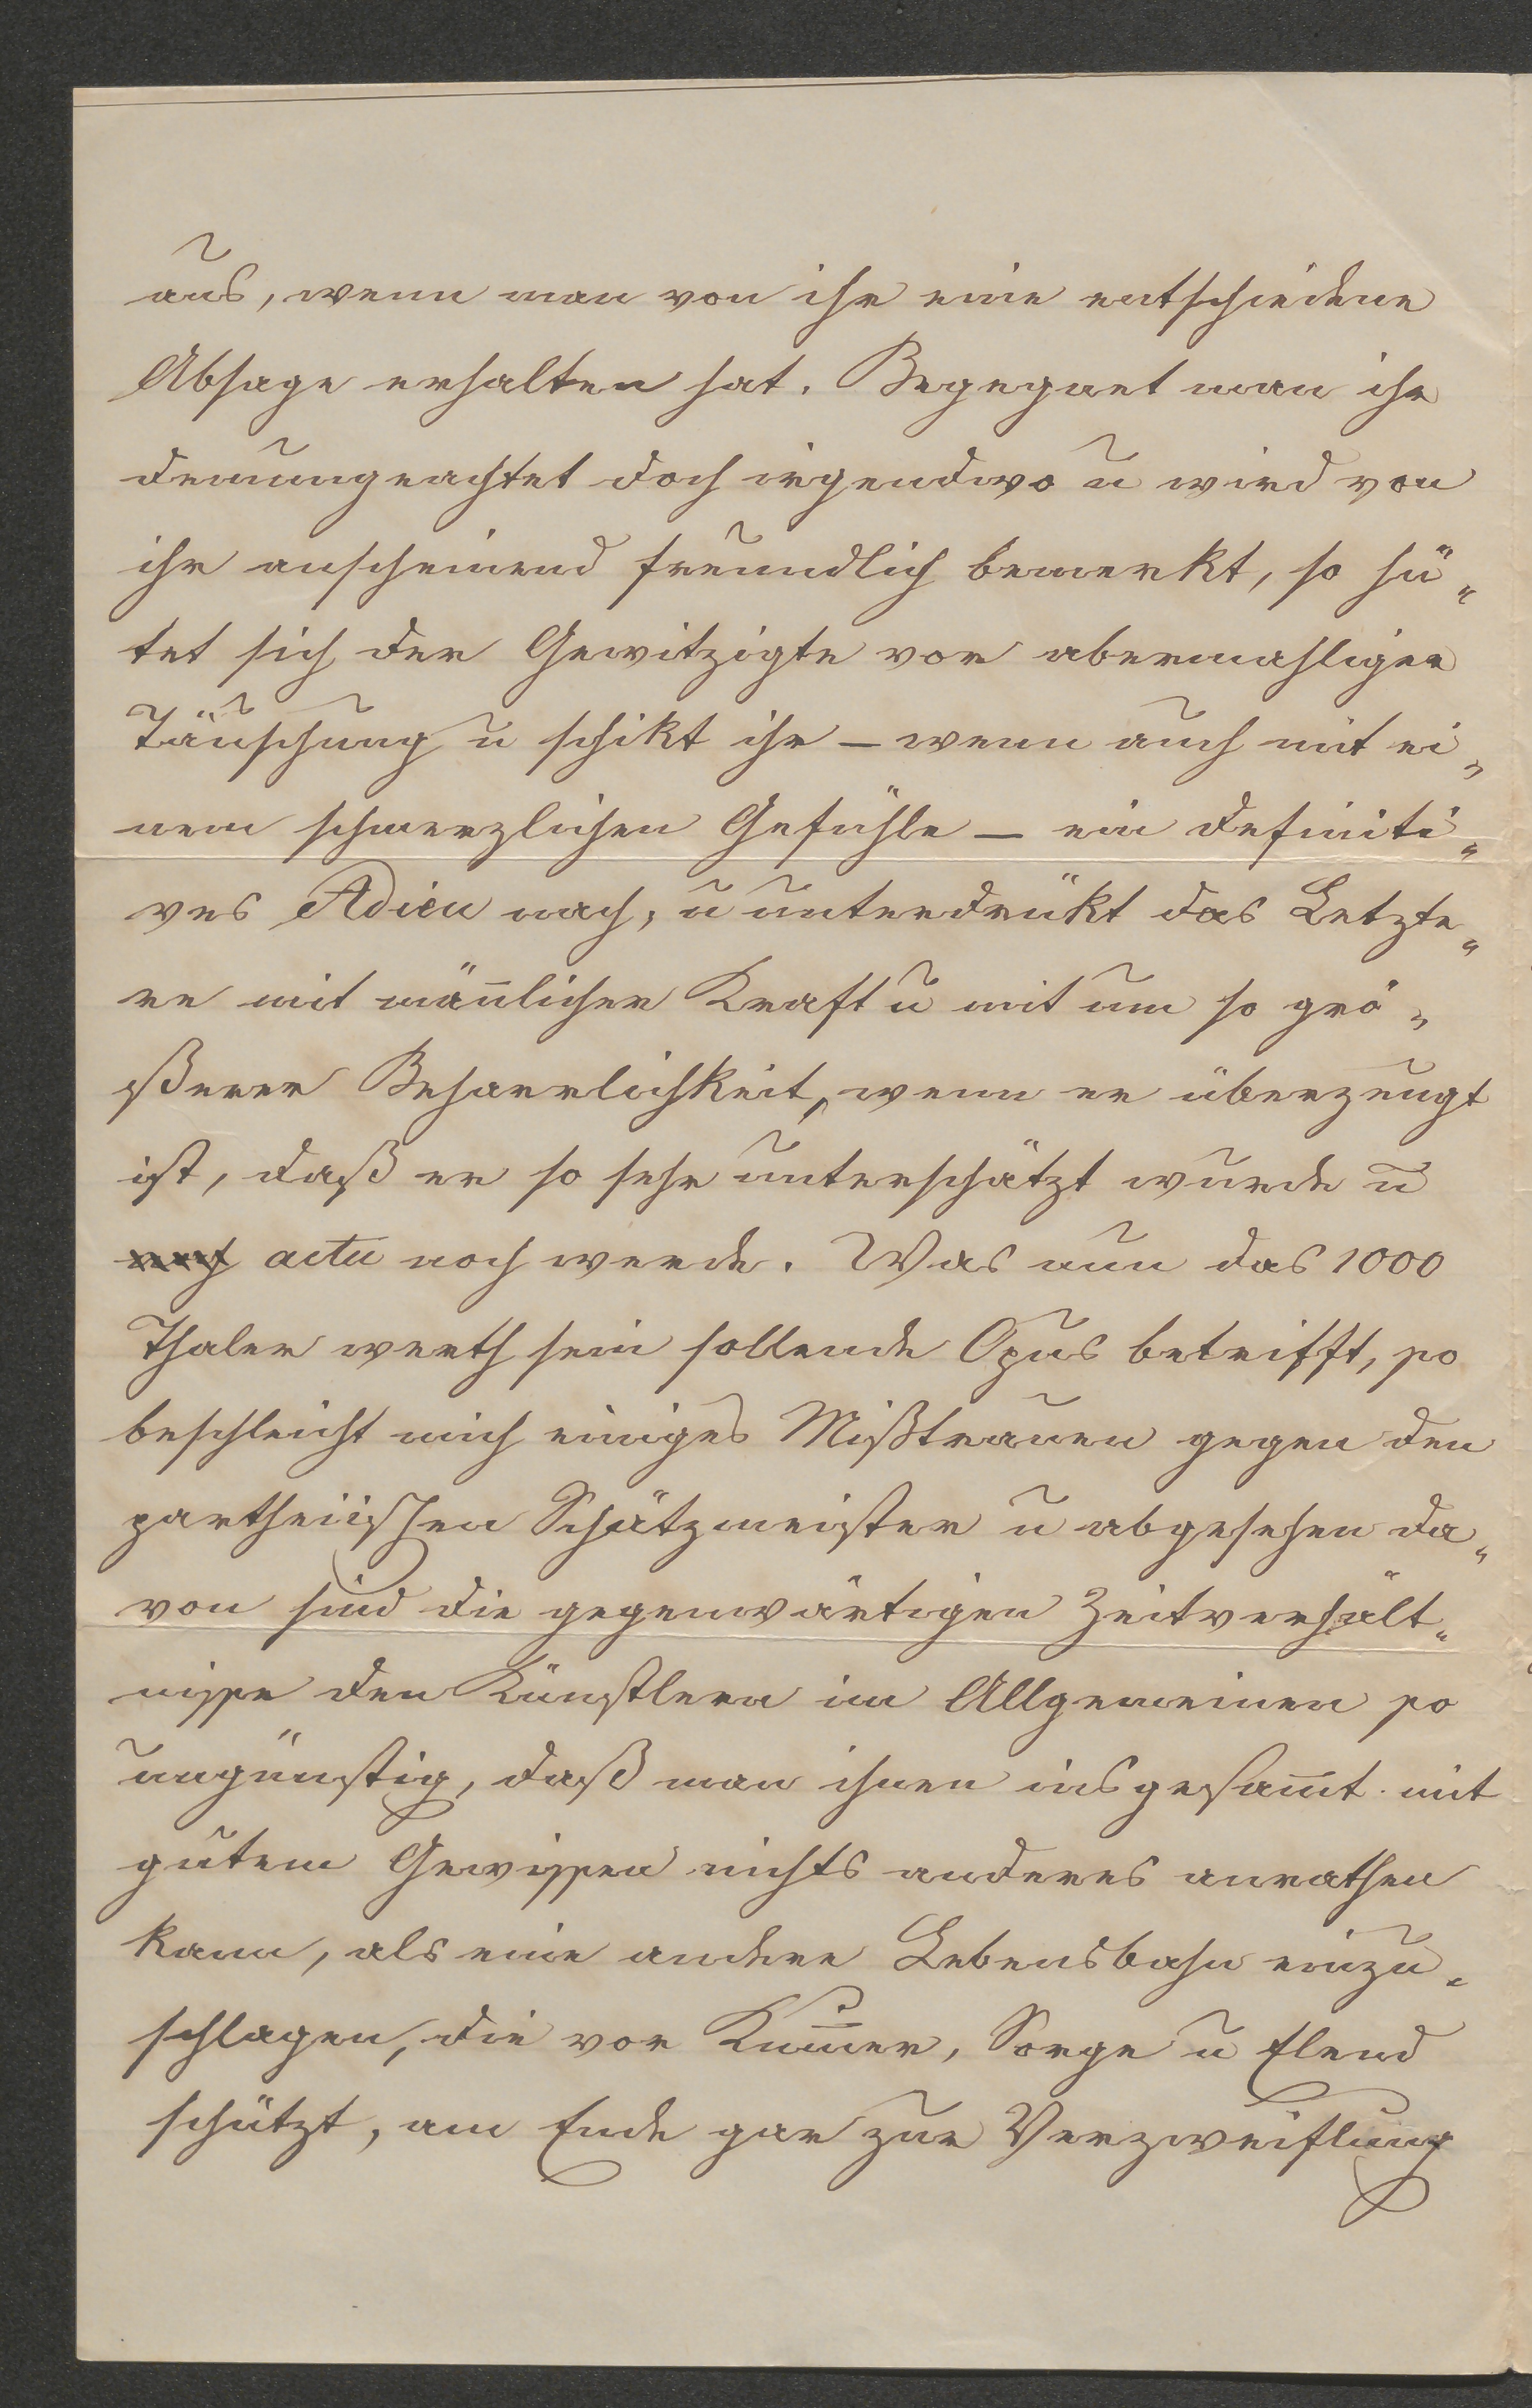 aus, wenn man von ihr eine entschiedene
Absage erhalten hat. Begegnet man ihr
demungeachtet doch irgendwo u wird von
ihr anscheinend freundlich bemerkt, so hü„
tet sich der Gewitzigte vor abermahliger
Täuschung u schikt ihr – wenn auch mit ei„
nem schmerzlichen Gefühle – ein definiti„
ves Adieu nach, u unterdrükt das Letzte„
re mit mäñlicher Kraft u mit um so grö„
ßerer Beharrlichkeit, wenn er überzeugt
ist, daß er so sehr unterschätzt wurde u
noch actu noch werde. Was nun das 1000
Thaler werth sein sollende Opus betrifft, so
beschleicht mich einiges Mißtrauen gegen den
partheiischen Schätzmeister u abgesehen da„
von sind die gegenwärtigen Zeitverhält„
nisse den Künstlern im Allgemeinen so
ungünstig, daß man ihnen insgesam̄t mit
gutem Gewissen nichts anderes anrathen
kann, als eine andere Lebensbahn einzu„
schlagen, die vor Kum̄er, Sorge u Elend
schützt, am Ende gar zur Verzweiflung